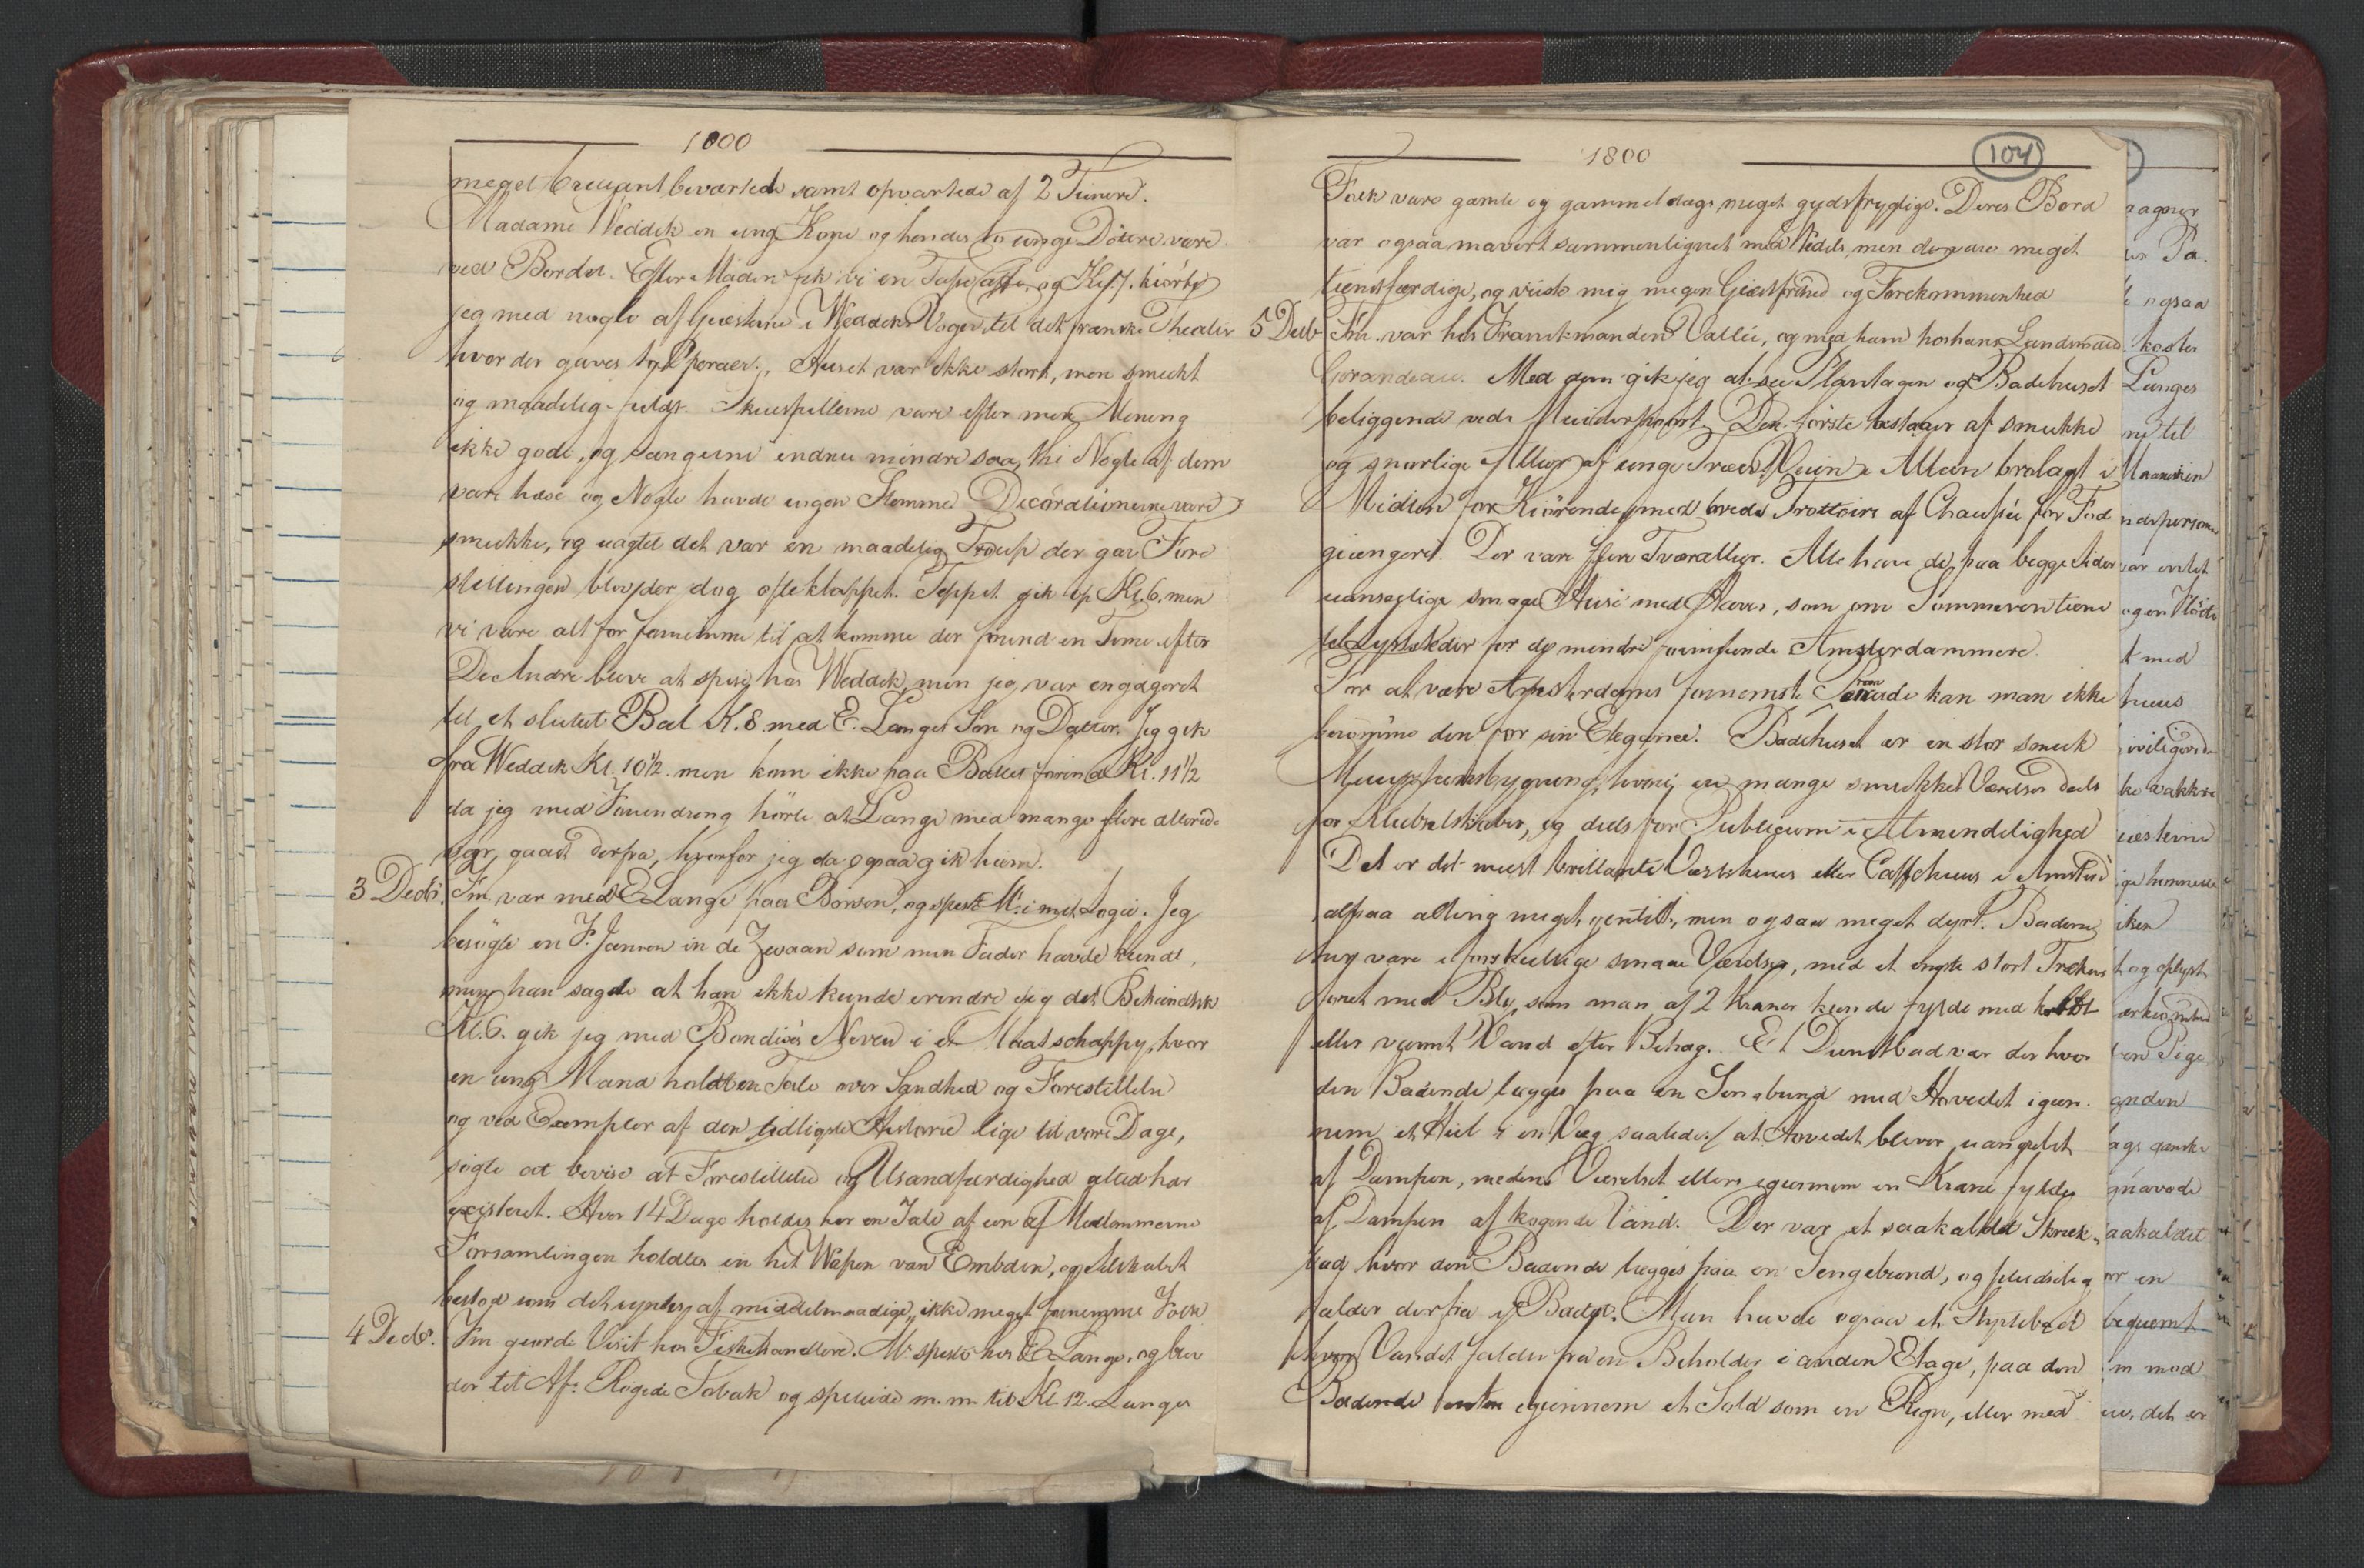 1800
meget brillant beværtede samt opvartede af 2 Tienere.
Madame Weddek en ung Kone og hendes to unge Döttre vare
ved Bordet. Efter Maden fik vi en Tasse Caffe, og Kl. 7. kiørte
jeg med nogle af Giæsterne i Weddeks Vogn til det franske Theater
hvor der gaves to Operaer. Huset var ikke stort, men smukt
og maadelig fuldt. Skuespillerne vare efter min Mening
ikke gode, og Sangerne endnu mindre saa, thi Nogle af dem
vare hæse og Nogle havde ingen Stemme. Decorationerne vare
smukke, og uagtet det var en maadelig Troup der gav Fore
stillingen blev der dog ofte klappet. Teppet gik op Kl. 6. men
vi vare alt for fornemme til at komme der förend en Time efter
De Andre bleve at spise hos Weddek, men jeg var engageret
til et sluttet Bal Kl. 8 med E. Langes Sön og Datter. Jeg gik
fra Weddek Kl. 10½. men kom ikke paa Ballet förend Kl. 11½
da jeg med Forundring hörte at Lange med mange flere allerede
var gaaet derfra, hvorfor jeg da ogsaa gik hiem.
3 Decbr. Fm. var med E Lange paa Börsen, og spiste M. i mit Logie. Jeg
besögte en F. Jansen in de Zwaan som min Fader havde kiendt,
men han sagde at han ikke kunde erindre sig det Bekiendtsk.
Kl. 6. gik jeg med Bondixs Neveu i et Maatschappy, hvor
en ung Mand holdt en Tale over Sandhed og Forestillelse
og ved Exempler af den tidligste Historie lige til vore Dage,
sögte at bevise at Forestillelse og Usandfærdighed altid har
existeret. Hver 14 Dage holdes her en Tale af een af Medlemmerne
Forsamlingen holdtes in het Wapen van Embden, og Selskabet
bestod som det syntes, af middelmaadige, ikke meget fornemme Folk
4 Decbr. Fm giorde Visit hos Fiskehandlere. M. spiste hos E Lange, og blev
der til Af: Rögede Tobak og spillede m. m. til Kl. 12. Langes
1800
104
Folk vare gamle og gammeldags meget gudsfrygtige. Deres Bord
var ogsaa mavert sammenlignet med Wedeks, men de vare meget
tienstfærdige, og viiste mig megen Giæstfrihed og Forekommenhed
5 Decbr Fm. var hos Franskmanden Vallée, og med ham hos hans Landsmand
Gorandeau. Med dem gik jeg at see Plantagen og Badehuset
beliggende ved Muiderpoort. Den förste bestaaer af smukke
og snorlige Alleer af unge Træer. Veien i Alleen brolagt i
Midten for Kiörende, med brede Trottoirs af Chausée for Fod
giængere. Der vare flere Tværalleer. Alle have de paa begge Sider
uanseelige smaae Huse med Haver, som om Sommeren tiene
til Lyststeder for de mindre formuende Amsterdammere.
For at være Amsterdams fornemste Promenade kan man ikke
berömme den for sin Elegance. Badehuset er en stor smuk
Muurstensbygning, hvori ere mange smukke Værelser deels
for Klubselskaber, og deels for Publicum i Almindelighed
Det er det meest brillante Vertshuus eller Caffehuus i Amsterd
altsaa alting meget gentilt, men ogsaa meget dyrt. Badene
her vare i forskiellige smaae Værelser, med et ungte stort Trækar
foret med Bly, som man af 2 Kraner kunde fylde med koldt
eller varmt Vand efter Behag. Et Dunstbad var der hvor
den Badende lægges paa en Sengbund med Hovedet igien
nem et Hul i en Væg saaledes at Hovedet bliver uangrebet
af Dampen, medens Værelset ellers igiennem en Krane fyldes
af Dampen af kogende Vand. Der var et saakaldet Skræk
bad hvor den Badende lægges paa en Sengebund, og pludselig
falder derfra i Badet. Man havde ogsaa et Styrtebad
hvor Vandet falder fra en Beholder i anden Etage, paa den
Badende enten igiennem et Sold som en Regn, eller med